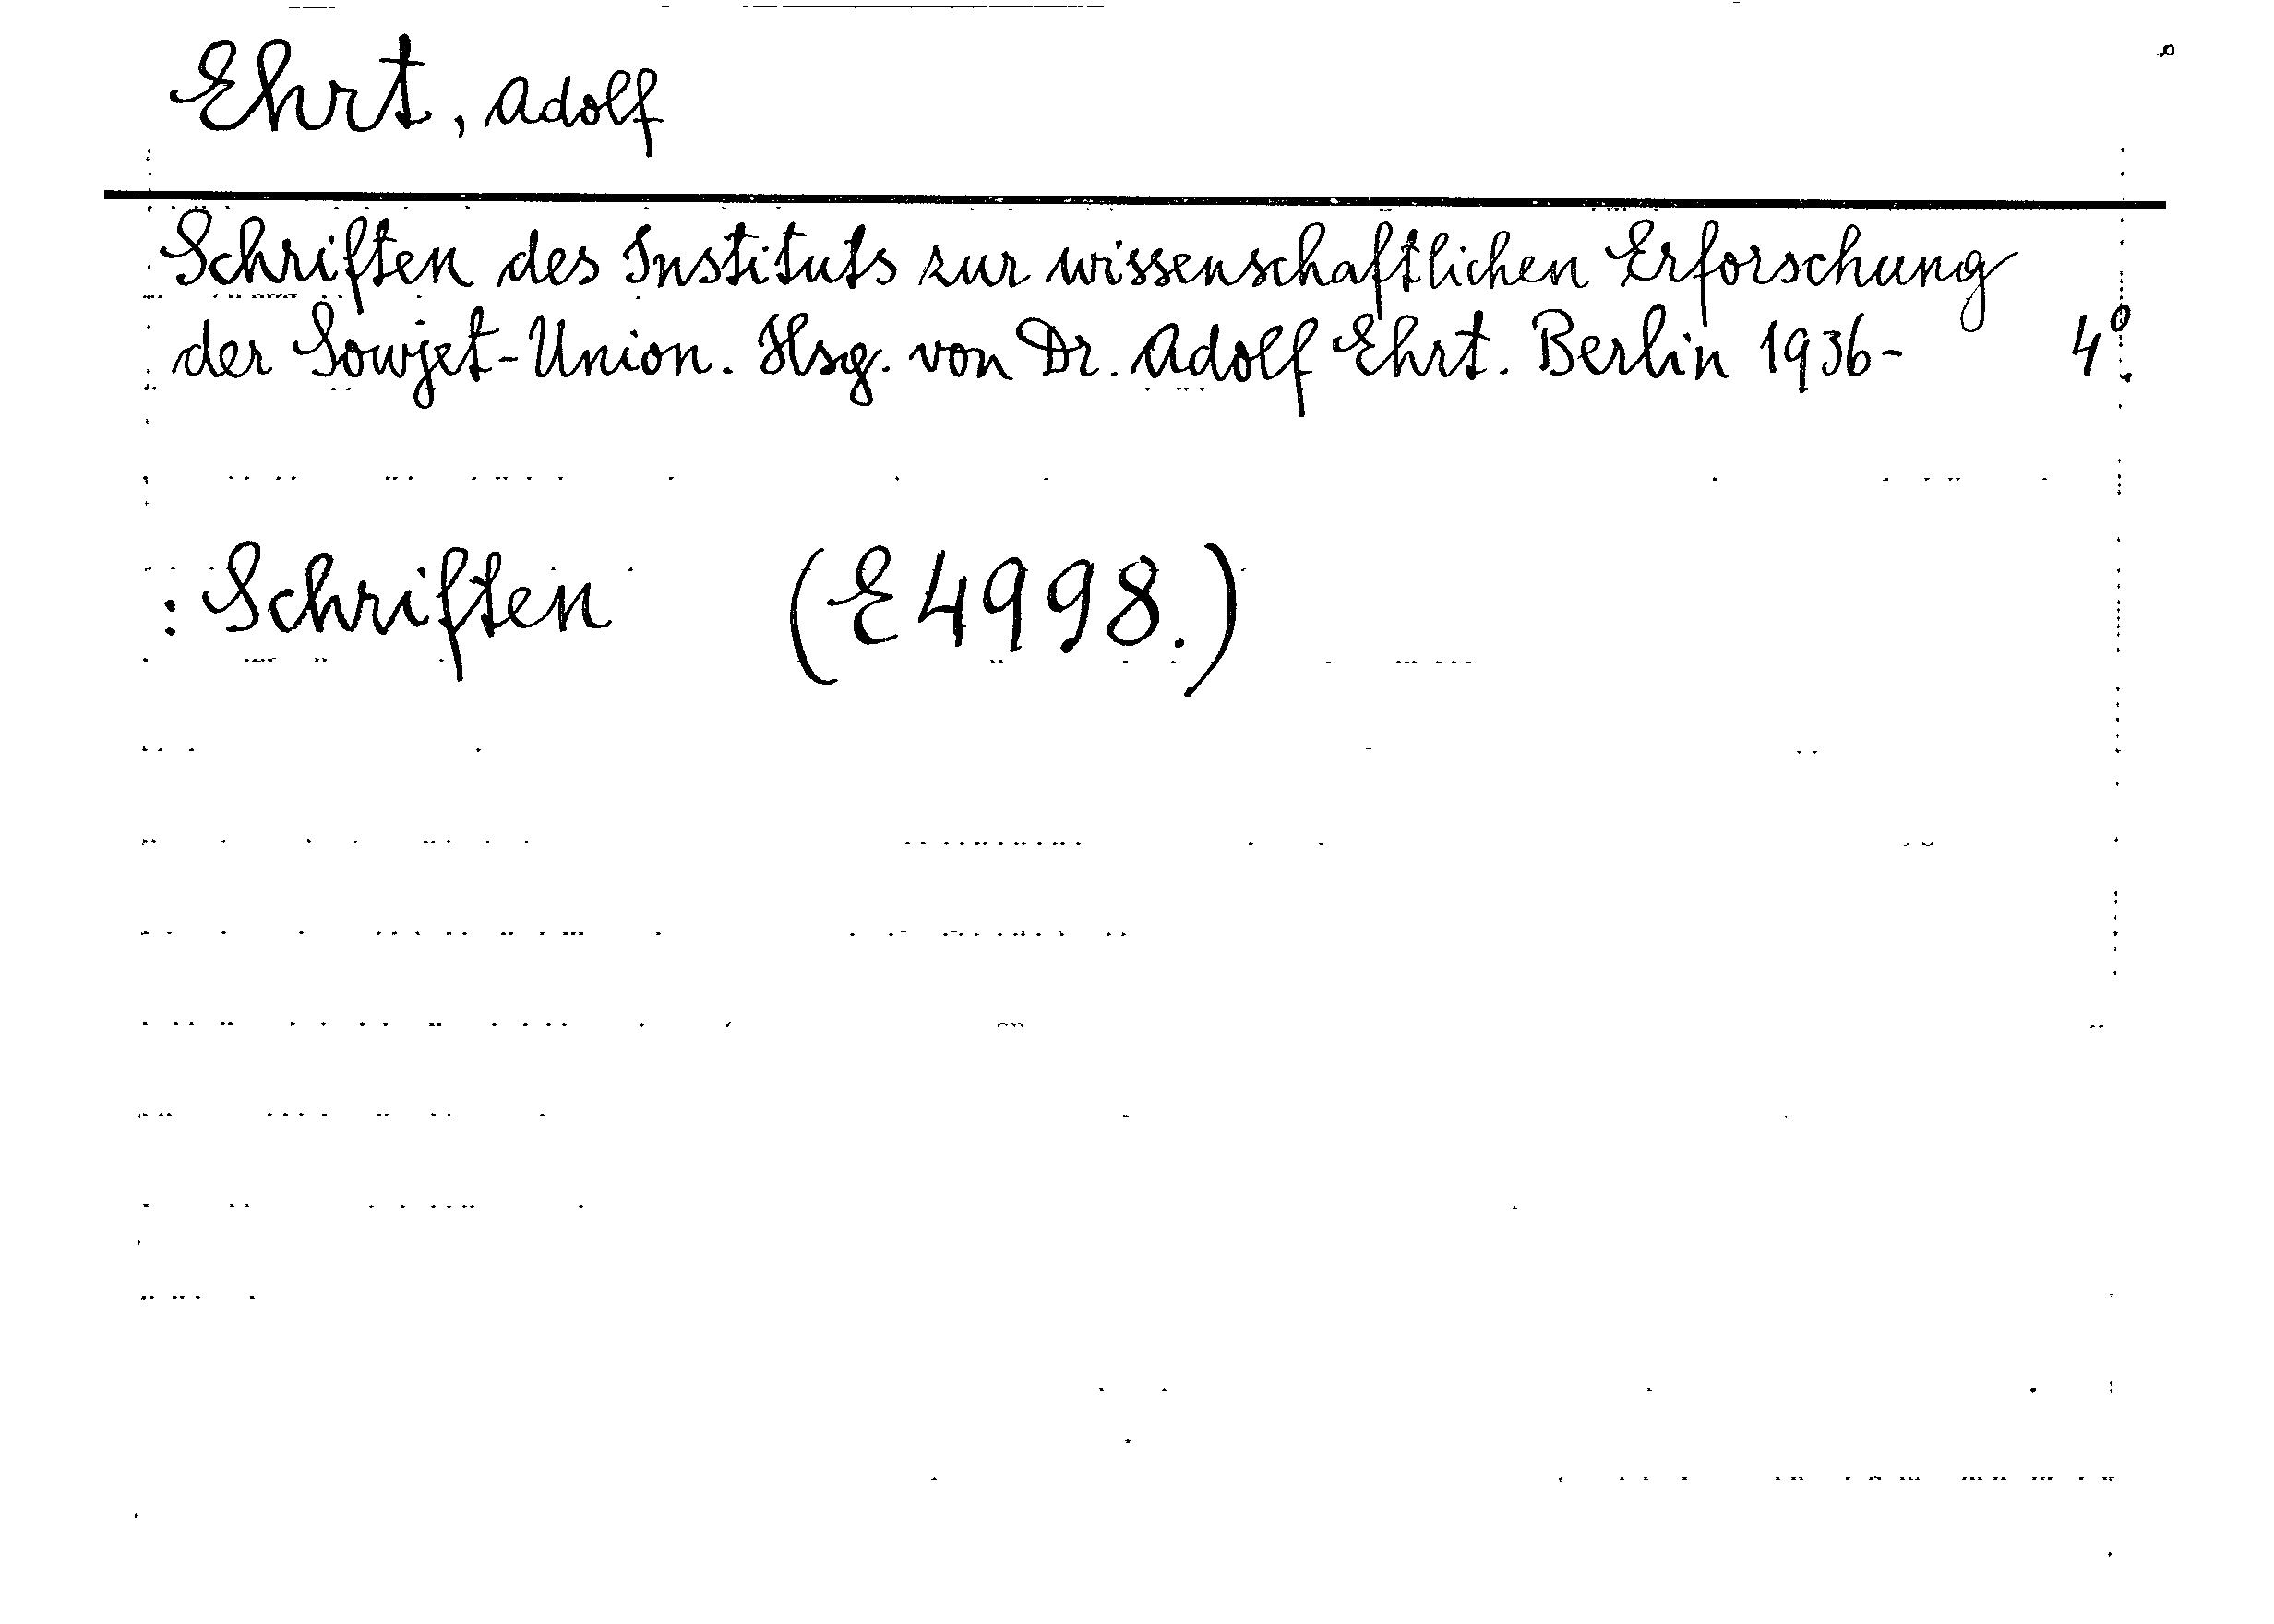 Ehrt, Adolf
Schriften des Instituts zur wissenschaftlichen Erforschung
der Sowjet-Union. Hsg. von Dr. Adolf Ehrt. Berlin 1936- 4°.
: Schriften (E 4998.)